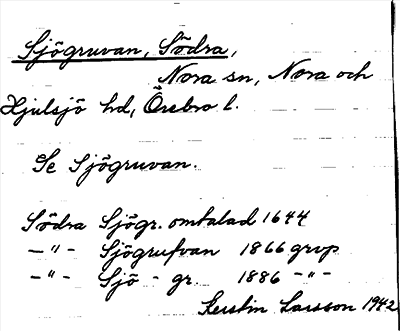 Sjögruvan, Södra,
Nora sn, Nora och
Hjulsjö hd, Örebro l.
Se Sjögruvan.
Södra Sjögr. omtalad 1644
—"— Sjögrufvan 1866 grvp
—"— Sjö - gr. 1886 —"—
Kerstin Larsson 1942